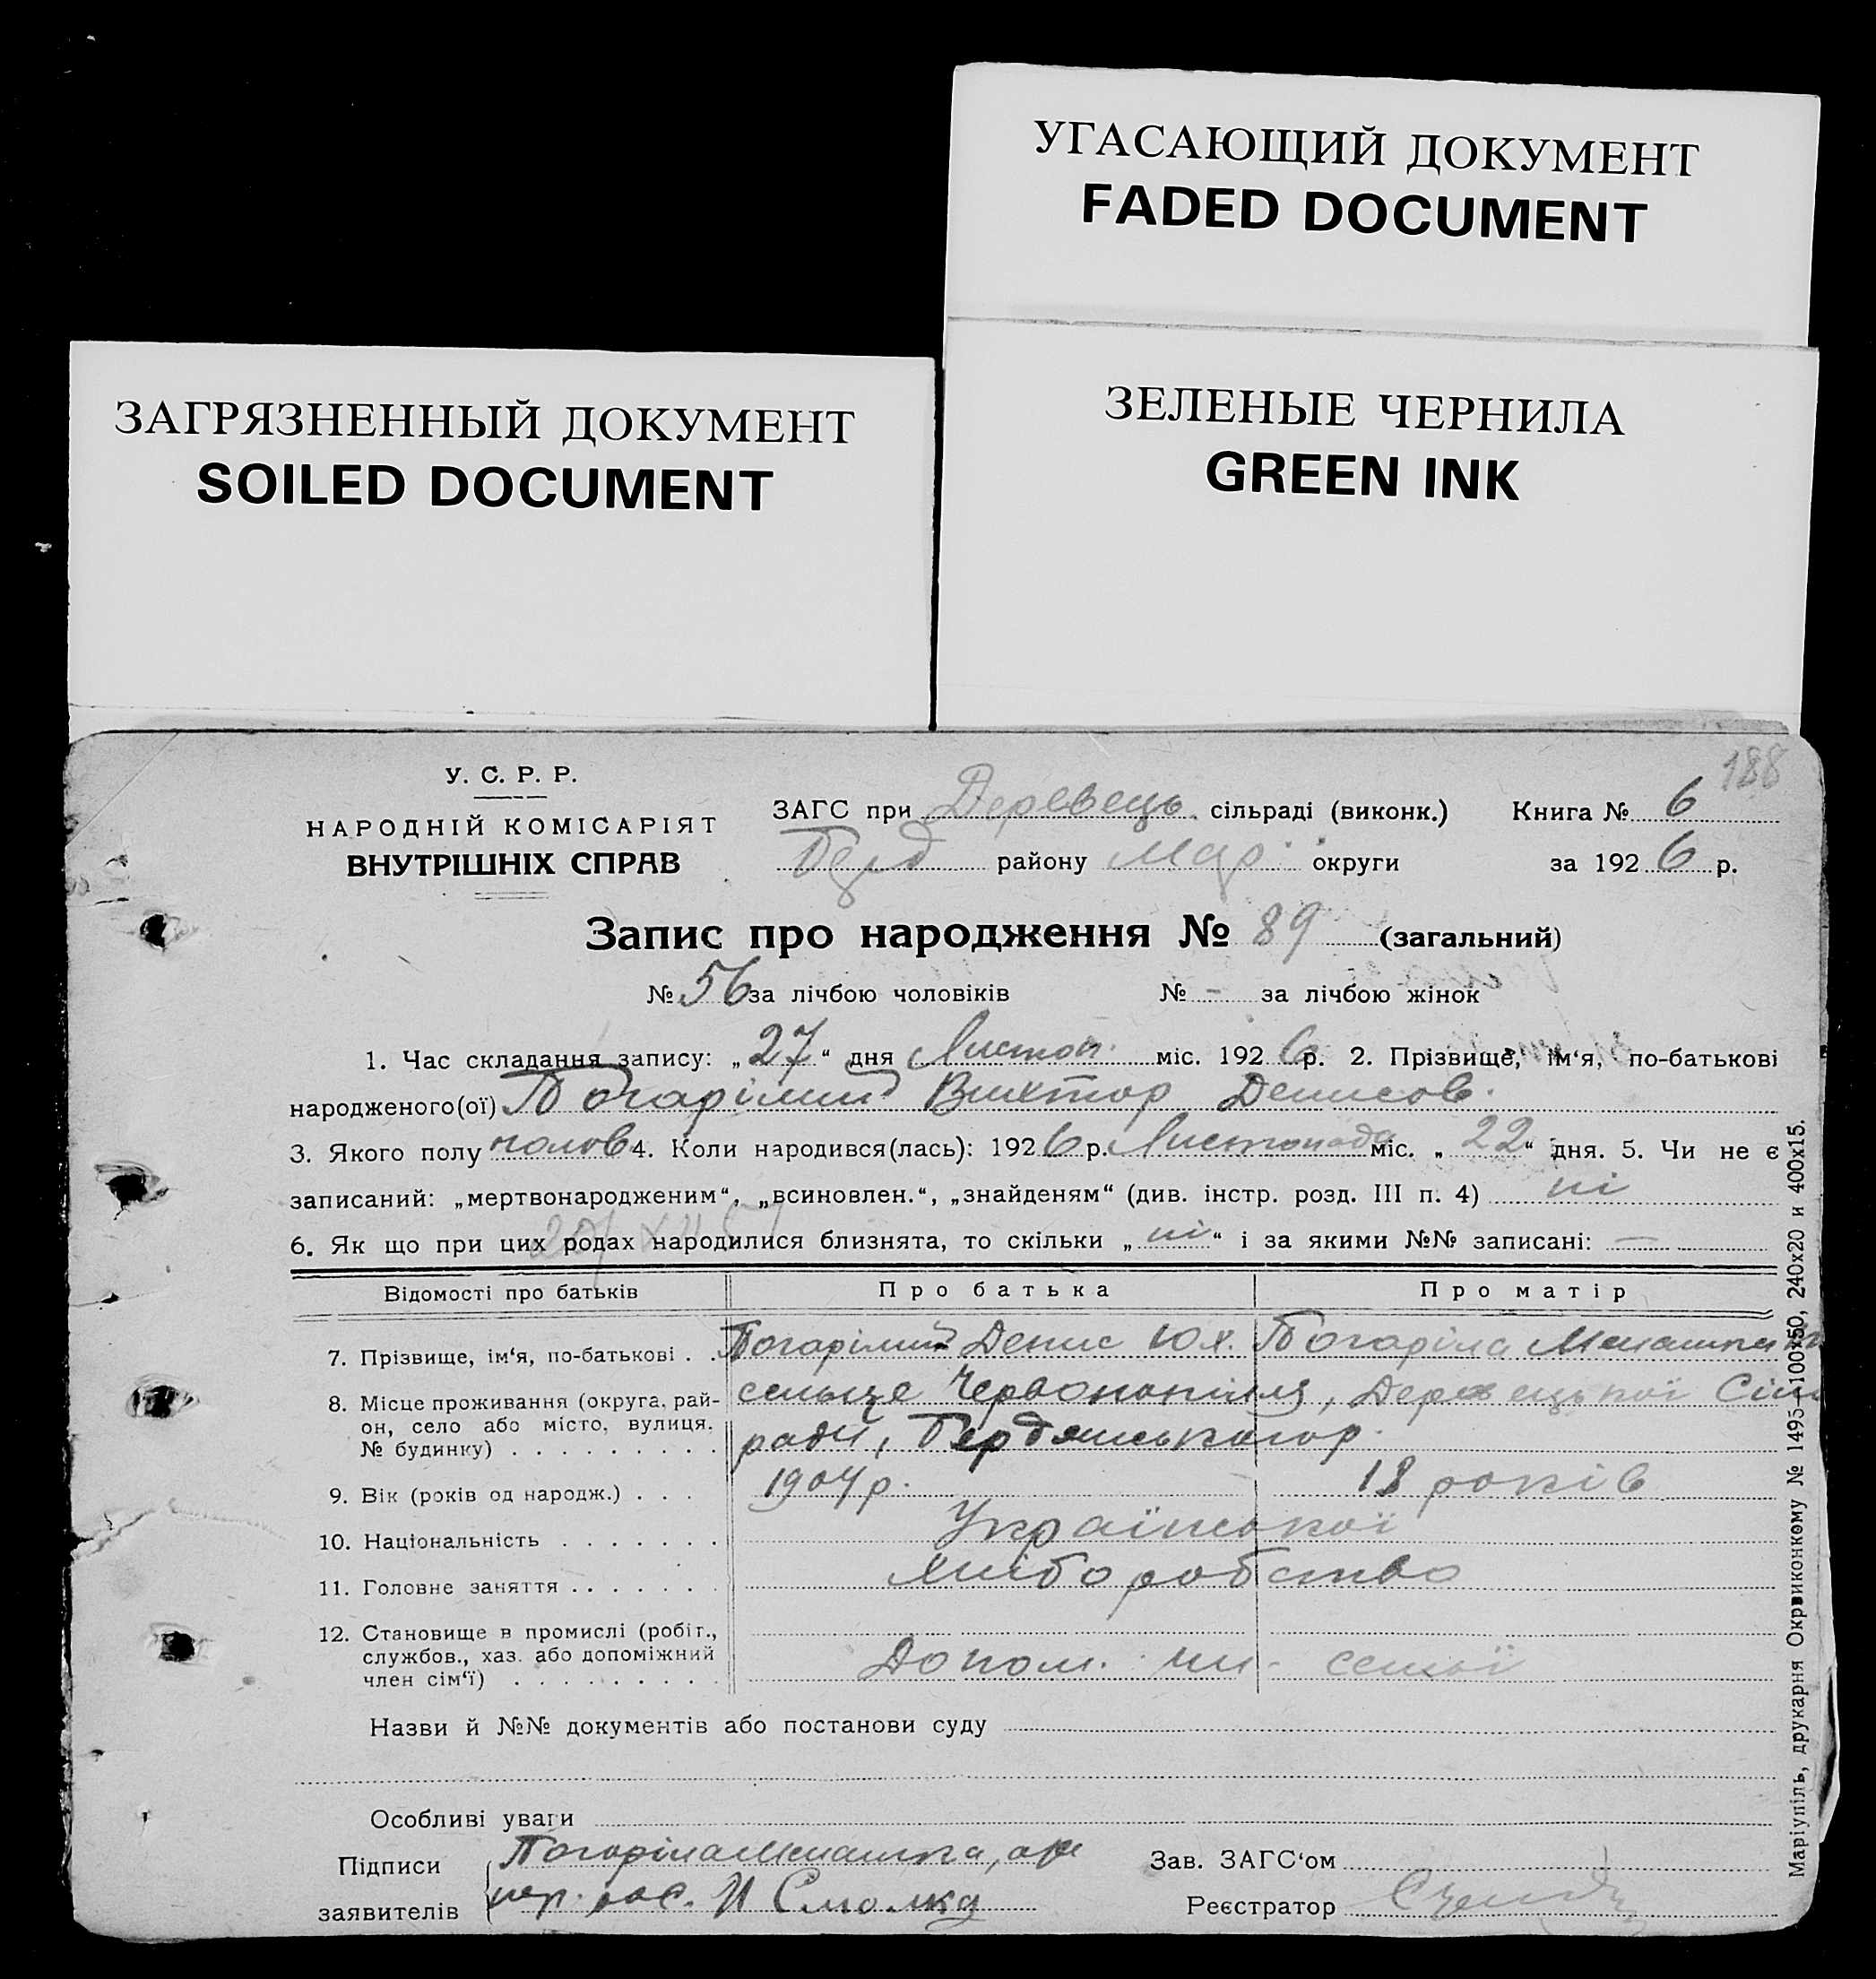 УГАСАЮЩИЙ ДОКУМЕНТ
FADED DOCUMENT
ЗАГРЯЗНЕННЫЙ ДОКУМЕНТ
SOILED DOCUMENT
ЗЕЛЕНЫЕ ЧЕРНИЛА
GREEN INK
188
У. С. Р. Р.
НАРОДНІЙ КОМІСАРІЯТ
ВНУТРІШНІХ СПРАВ
ЗАГС при Деревець. сільраді (виконк.) Книга № 6
Берд району Мар. округи за 1926 р.
Запис про народження № 89 (загальний)
№ 56 за лічбою чоловіків № - за лічбою жінок
1. Час складання запису: „27“ дня Листоп. міс. 1926 р. 2. Прізвище, ім‘я, по-батькові
народженого(ої) Погарілий Виктор Денисов.
3. Якого полу чолов 4. Коли народився(лась): 1926 р. Листопада міс. „22“ дня. 5. Чи не є
записаний: „мертвонародженим“, „всиновлен.“, „знайденям“ (див. інстр. розд. III п. 4) ні
6. Як що при цих родах народилися близнята, то скільки „ні“ і за якими №№ записані: —
Відомості про батьків Про батька Про матір
7. Прізвище, ім‘я, по-батькові . . Погарілий Денис Юх. Погаріла Мелашка
8. Місце проживання (округа, рай-
он, село або місто, вулиця.
№ будинку) . . . . . . . . .
сельце Червонопілля, Деревецької Сіль
ради, Бердянського р.
9. Вік (років од народж.) . . . 1904 р. 18 років
10. Національність . . . . . . . Української
11. Головне заняття . . . . . . Хліборобство
12. Становище в промислі (робіт.,
службов., хаз. або допоміжний
член сім‘ї) . . . . . . . . .
Допом. чл. семьї
Назви й №№ документів або постанови суду
Особливі уваги
Підписи
заявителів
Погаріла Мелашка, а за
нер. рос. И Смолка
Зав. ЗАГС‘ом
Реєстратор
Маріупіль, друкарня Окрвиконкому № 1495—100х50, 240х20 и 400х15.